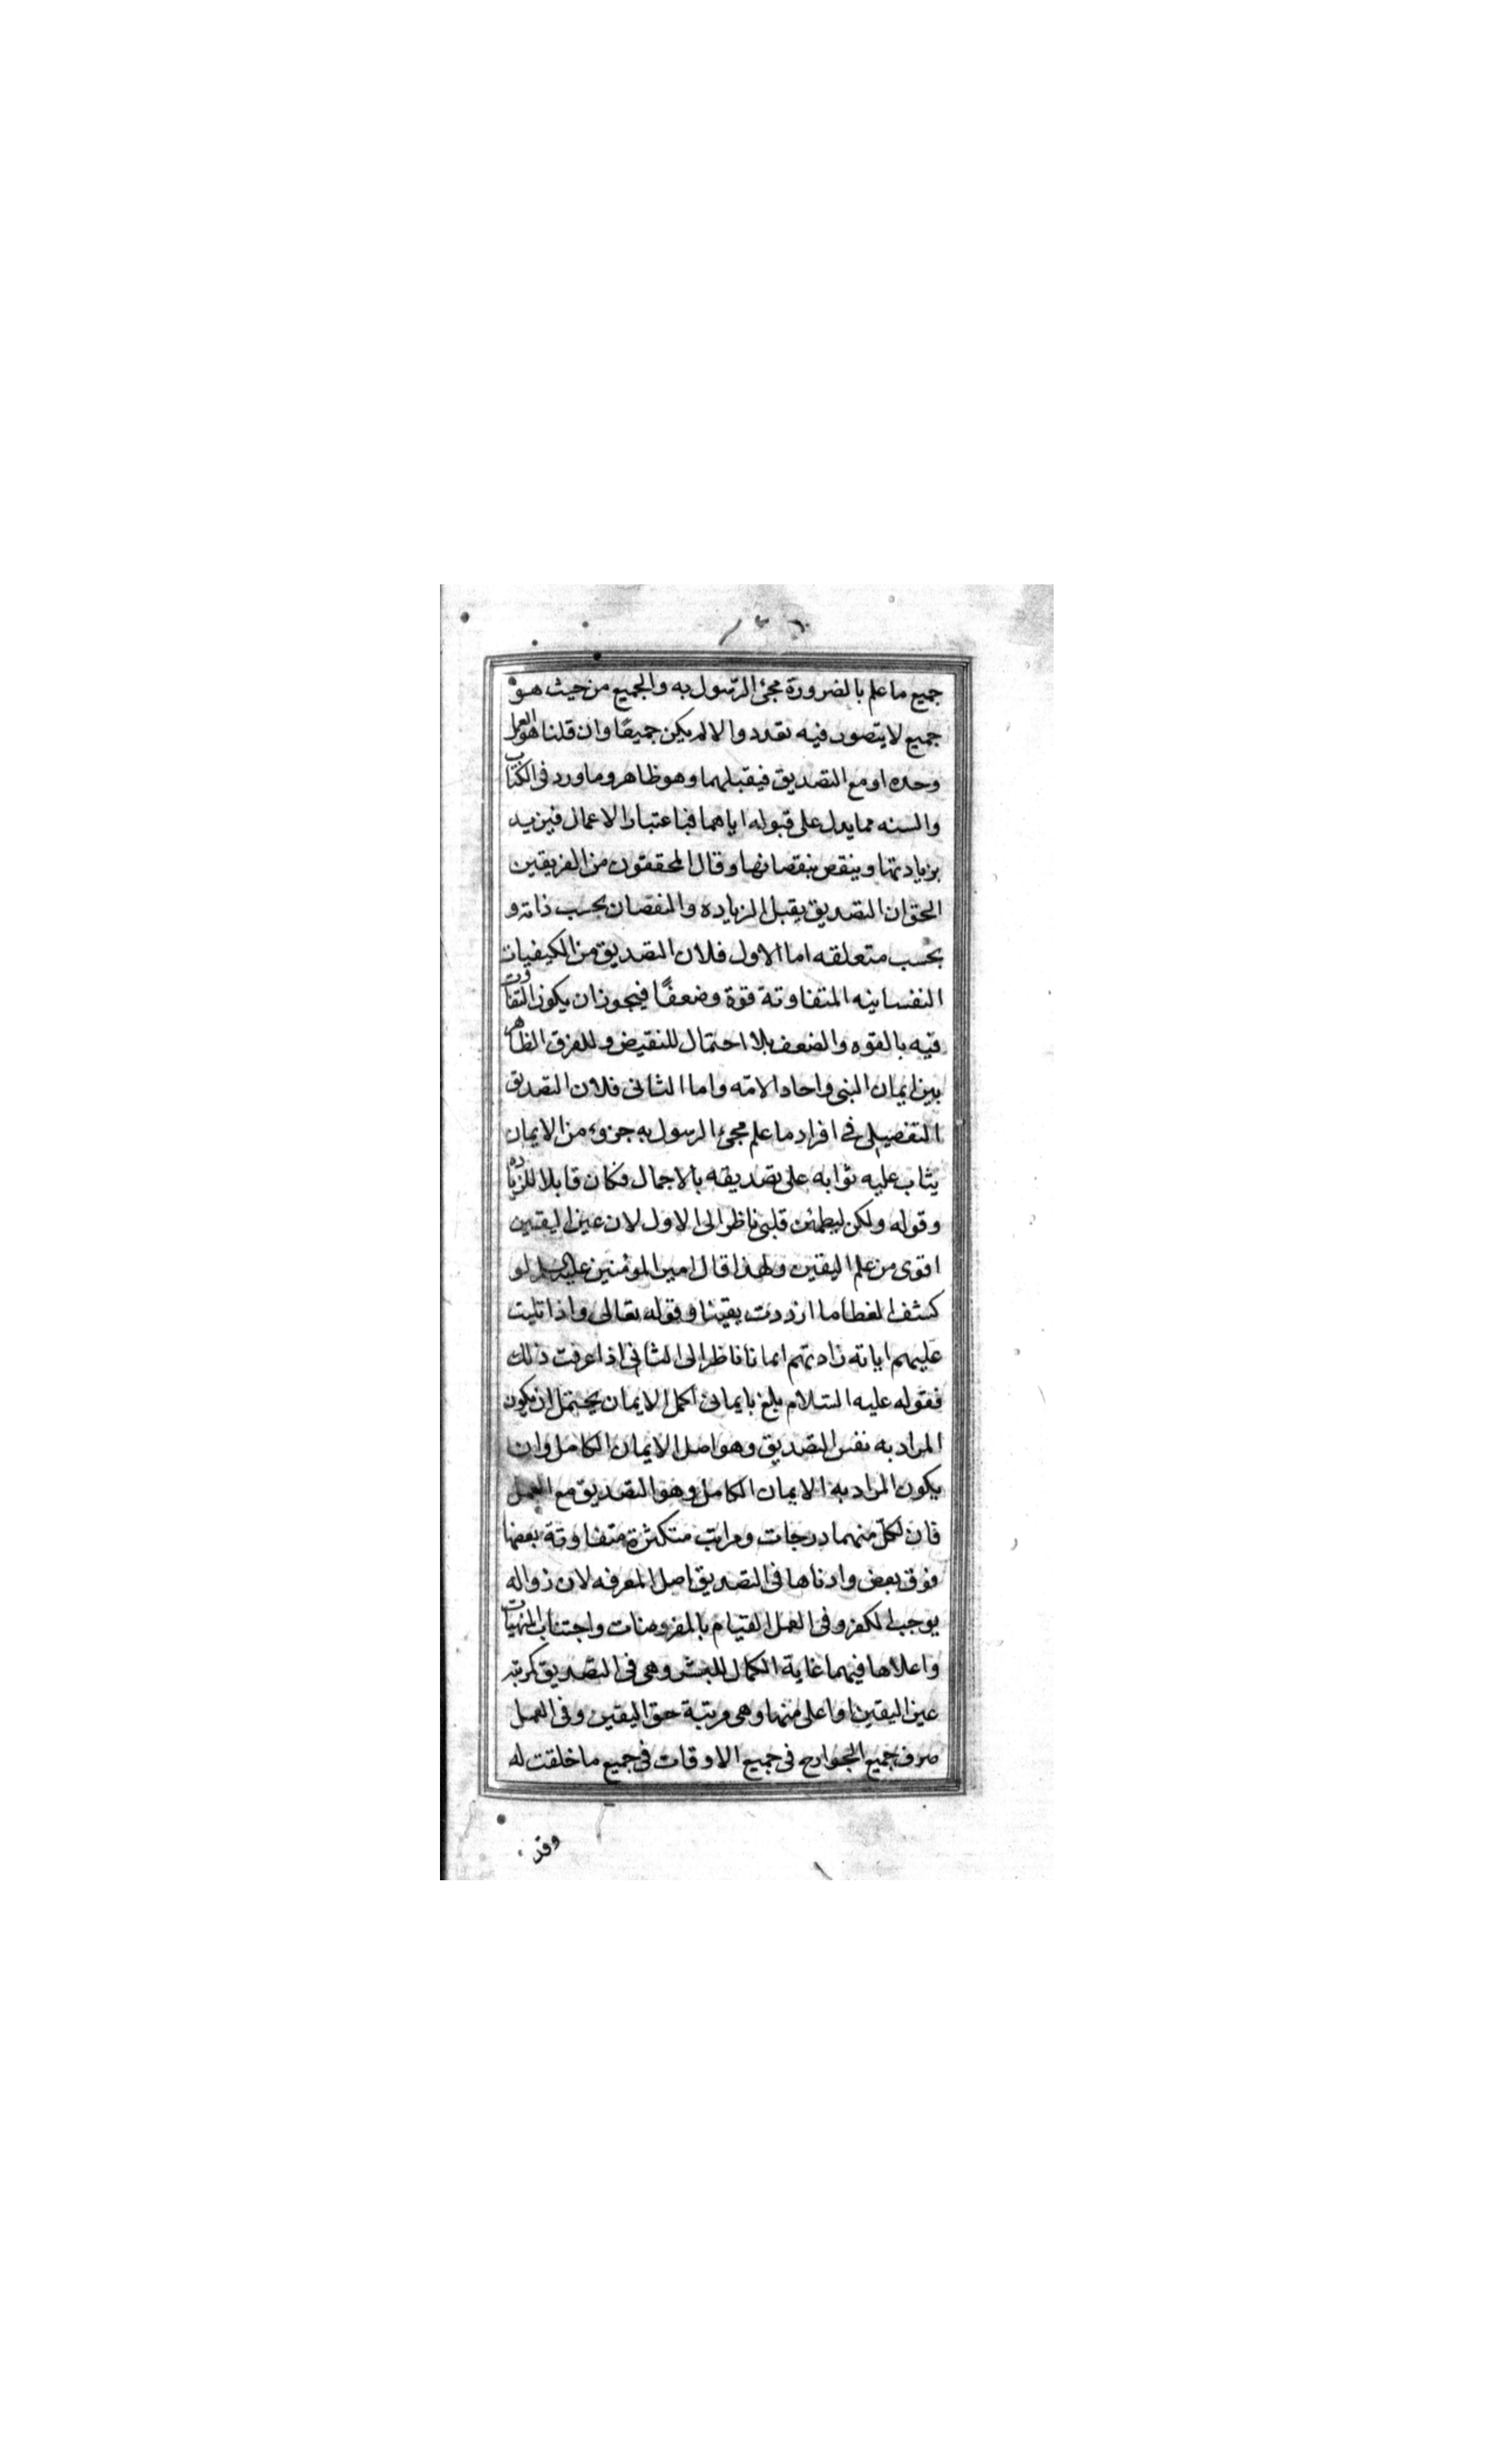 جميع ما علم بالضرورة مجئ الرسول به والجميع من حيث هو
جميع لا يتصور فيه تعدد والا لم يكن جميعًا وان قلنا هو العمل
وحده او مع التصديق فيقبلهما وهو ظاهر وما ورد فى الكتاب
والسنه مما يدل على قبوله اياهما فباعتبار الاعمال فيزيد
بزيادتها وينقص بنقصانها وقال المحققون من الفريقين
الحق ان التصديق يقبل الزياده والنقصان بحسب ذاته و
بحسب متعلقه اما الاول فلان التصديق من الكيفيات
النفسانيه المتفاوتة قوة وضعفًا فيجوز ان يكون التفاوت
فيه بالقوه والضعف بلا احتمال للنقيض وللفرق الظاهر
بين ايمان النبى واحاد الامّه واما الثانى فلان التصديق
التفصيلى فى افراد ما علم مجئ الرسول به جزوء من الايمان
يثاب عليه ثوابه على تصديقه بالاجمال فكان قابلا للزياده
وقوله ولكن ليطمئن قلبى ناظر الى الاول لان عين اليقين
اقوى من علم اليقين ولهذا قال امير المؤمنين عليه السلام لو
كشف الغطا ما ازددت يقينا وقوله تعالى واذا تليت
عليهم اياته زادتهم ايمانا ناظر الى الثانى اذا عرفت ذلك
فقوله عليه السّلام بلغ بايمانى اكمل الايمان يحتمل ان يكون
المراد به نفس التصديق وهو اصل الايمان الكامل وان
يكون المراد به الايمان الكامل وهو التصديق مع العمل
فان لكلّ منهما درجات ومراتب متكثرة متفاوتة بعضها
فوق بعض وادناها فى التصديق اصل المعرفه لان زواله
يوجب الكفر وفى العمل القيام بالمفروضات واجتناب المنهيات
واعلاها فيهما غاية الكمال للبشر وهى فى التصديق كمرتبة
عين اليقين او اعلى منها وهى مرتبة حق اليقين وفى العمل
صرف جميع الجوارح فى جميع الاوقات فى جميع ما خلقت له
وقد